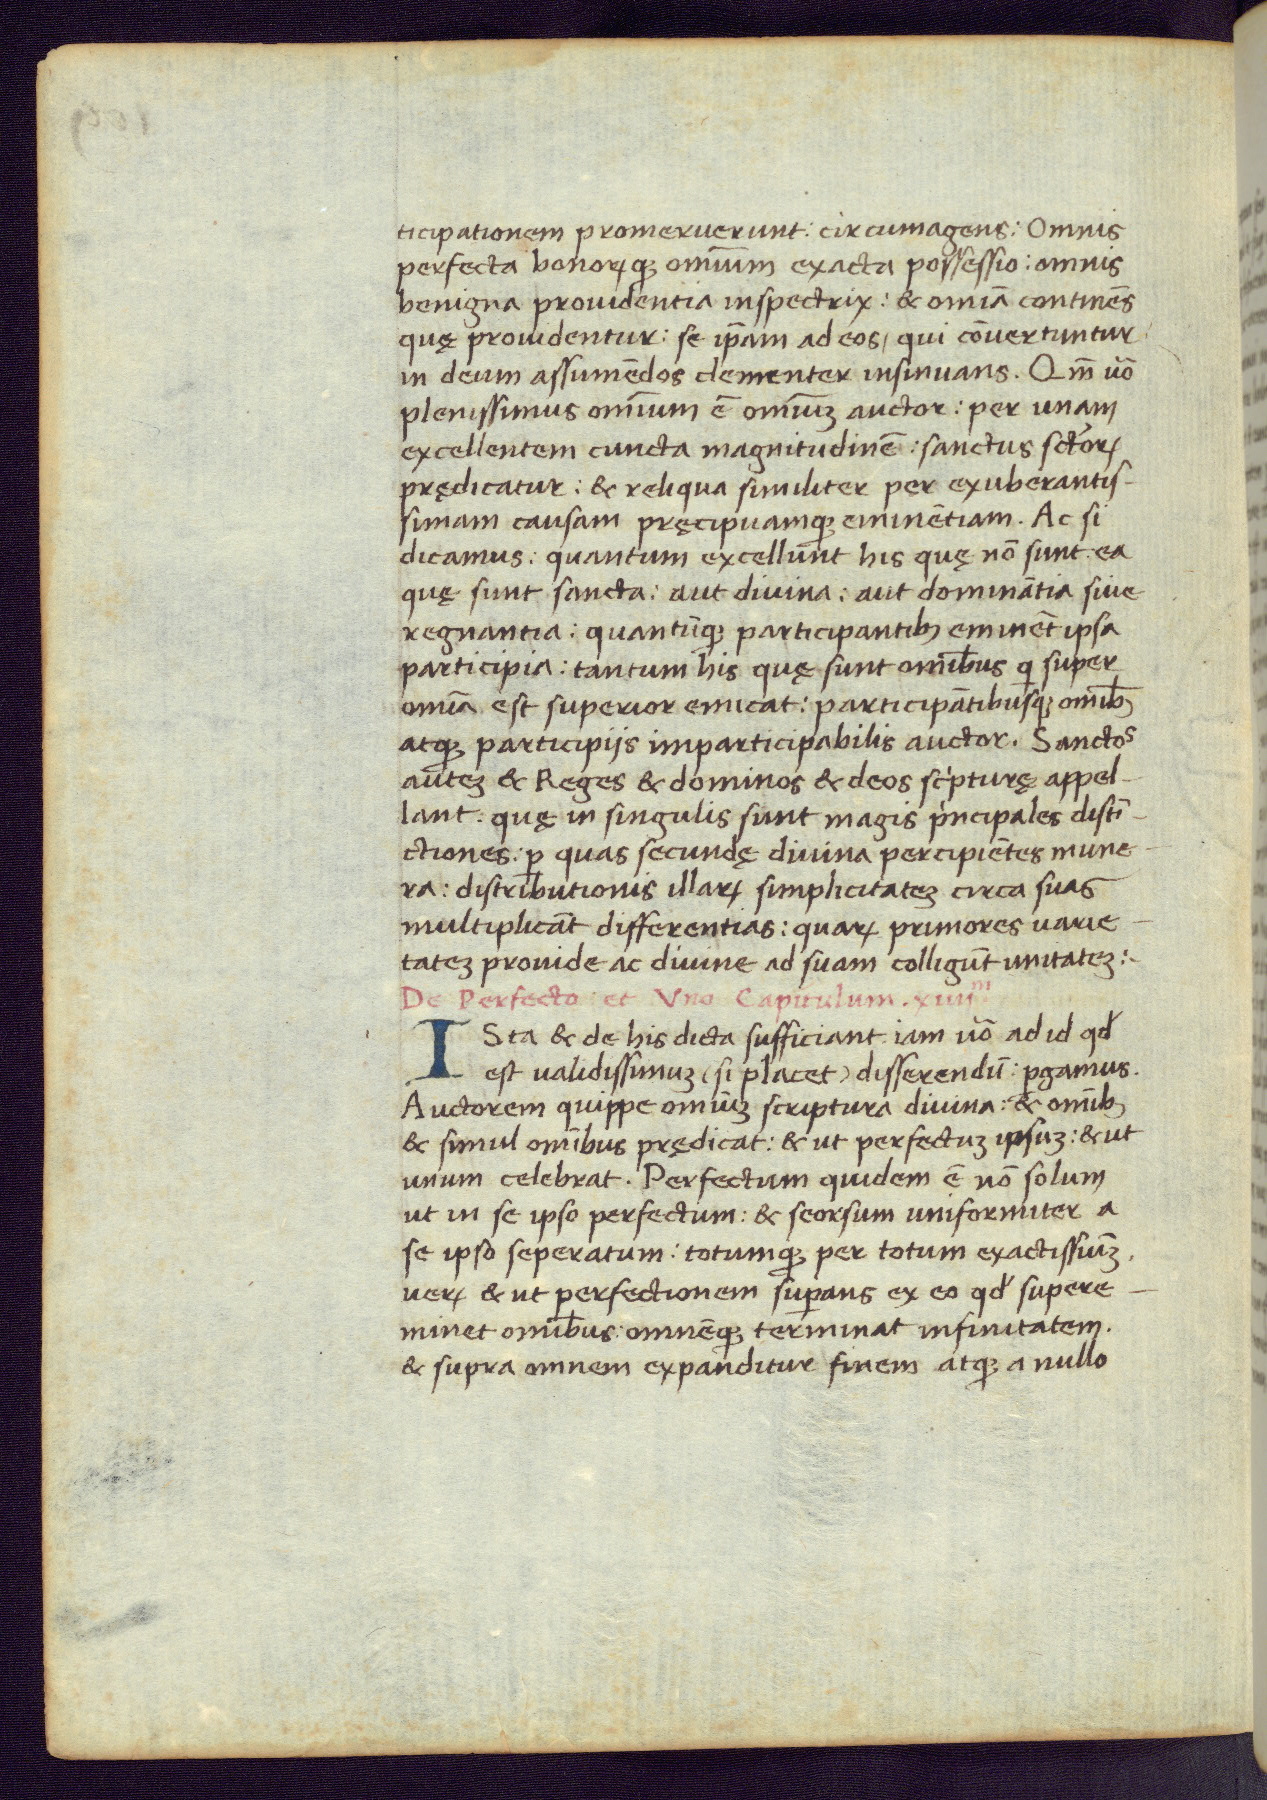 ticipationem promeruerunt: circumagens: Omnis
perfecta bonorꝝqꝫ omnium exacta possessio: omnis
benigna prouidentia inspectrix: & omīa continēs
quę prouidentur: se ip̄am ad eos, qui cōuertuntur
in deum assumēdos clementer insinuans. Qm̄ ūo
plenissimus omīum ē omīuꝫ auctor: per unam
excellentem cuncta magnitudinē: sanctus sctorꝝ
prędicatur: & reliqua similiter per exuberantis-
simam causam pręcipuamqꝫ eminētiam. Ac si
dicamus: quantum excellunt his quę nō sunt ea
quę sunt sancta: aut diuina: aut dominātia siue
regnantia: quantūqꝫ participantibꝫ eminēt ipsa
participia: tantum his quę sunt omībus q̄ super
omīa est superior emicat: participātibusqꝫ omībꝫ
atqꝫ participijs imparticipabilis auctor. Sanctos
auteꝫ & Reges & dominos & deos sc̄pturę appel-
lant: quę in singulis sunt magis p̄ncipales distī-
ctiones: ꝑ quas secundę diuina percipiētes mune-
ra: distributionis illarꝝ simplicitateꝫ circa suas
multiplicāt differentias: quarꝝ primores uarie-
tateꝫ prouide ac diuine ad suam colligūt unitateꝫ:
De Perfecto et Vno Capitulum .xiii̅m
ISta & de his dicta sufficiant iam ūo ad id qđ
est ualidissimuꝫ (si placet) disserendū: ꝑgamus.
Auctorem quippe omīuꝫ scriptura diuina: & omībꝫ
& simul omībus prędicat: & ut perfectuꝫ ipsuꝫ: & ut
unum celebrat. Perfectum quidem ē nō solum
ut in se ipso perfectum: & seorsum uniformiter a
se ipso seperatum: totumqꝫ per totum exactissiūꝫ.
uerꝝ & ut perfectionem suꝑans ex eo qđ supere-
minet omībus: omnēqꝫ terminat infinitatem.
& supra omnem expanditur finem atqꝫ a nullo